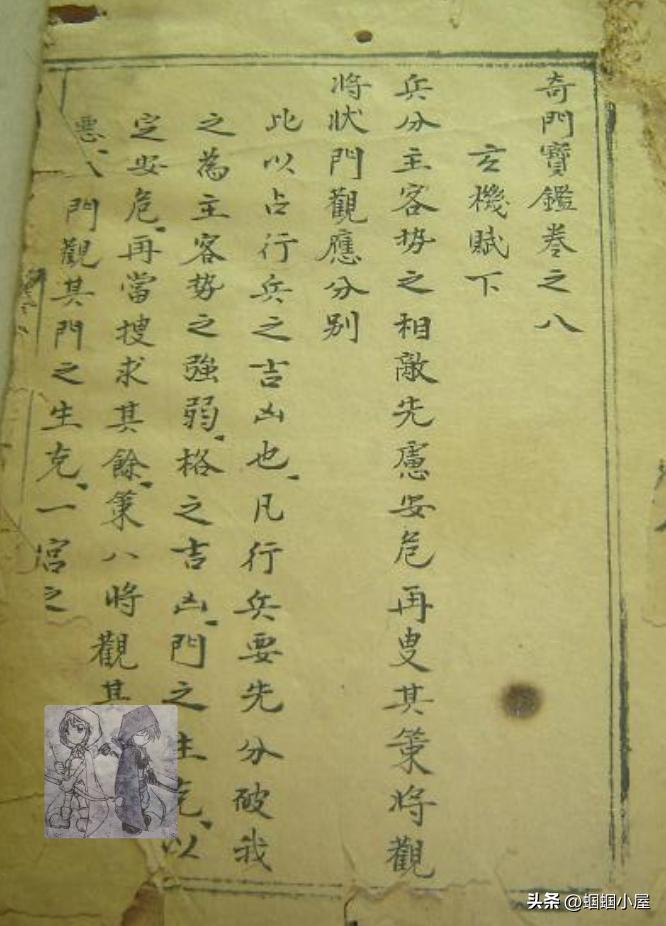 奇門寶鑑卷之八
玄機賦下
兵分主客势之相敵先慮安危再叟其策将觀
将状門觀應分别
此以占行兵之吉凶也凡行兵要先分破我
之為主客势之強弱格之吉凶門之生克以
定安危再當搜求其餘策八将觀其
惡八門觀其門之生克一宮之
头条@蝈蝈小屋